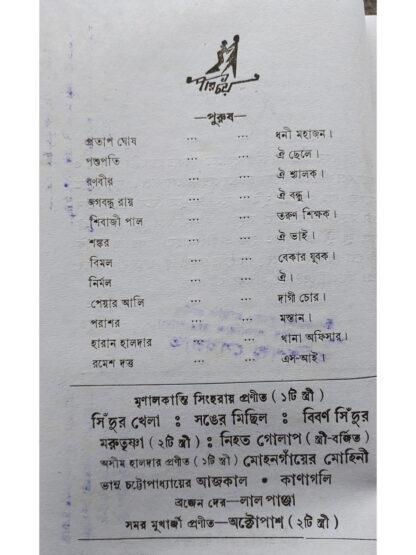 পরিচয়
—পুরুষ—
প্রতাপ ঘোষ ... ... ধনী মহাজন।
পশুপতি ... ... ঐ ছেলে।
রণবীর ... ... ঐ শ্যালক।
জগবন্ধু রায় ... ... ঐ বন্ধু।
শিবাজী পাল ... ... তরুণ শিক্ষক।
শঙ্কর ... ... ঐ ভাই।
বিমল ... ... বেকার যুবক।
নির্মল ... ... ঐ।
পেয়ার আলি ... ... দাগী চোর।
পরাশর ... ... মস্তান।
হারান হালদার ... ... থানা অফিসার।
রমেশ দত্ত ... ... এস-আই।
মৃণালকান্তি সিংহরায় প্রণীত ( ১টি স্ত্রী )
সিঁদুর খেলা : সঙের মিছিল : বিবর্ণ সিঁদুর
মরুতৃষ্ণা ( ২টি স্ত্রী ) : নিহত গোলাপ ( স্ত্রী-বর্জিত )
অসীম হালদার প্রণীত ( ১টি স্ত্রী ) মোহনগাঁয়ের মোহিনী
ভানু চট্টোপাধ্যায়ের আজকাল • কাণাগলি
ব্রজেন দের—লাল পাঞ্জা
সমর মুখার্জী প্রণীত—অক্টোপাশ ( ২টি স্ত্রী )